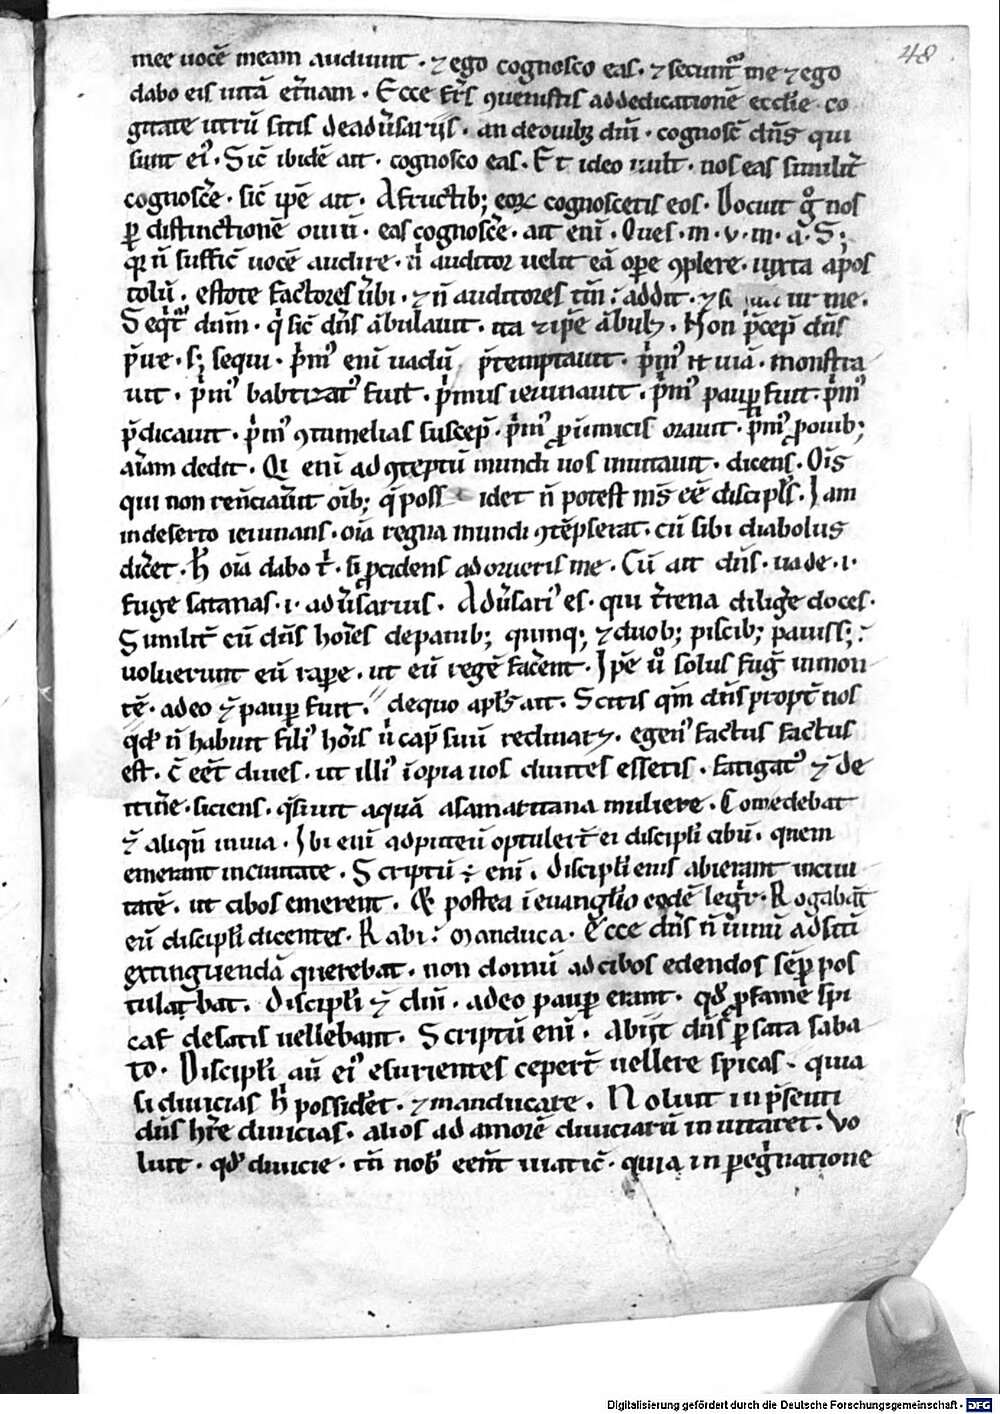 48
mee uocē meam audiunt . ⁊ ego cognosco eas . ⁊ secunt᷑ me ⁊ ego
dabo eis uitā et̄nam . Ecce fr̄s ꝯuenistis ad dedicationē eccl̄ie . co
gitate utrū sitis de adu̓sarijs . an de ouibꝫ dn̄i . cognosc̄ dn̄s qui
sunt eiꝰ . Sic̄ ibidē ait . cognosco eas . Et ideo uult . nos eas similit̄
cognosce̓ . sic̄ ip̄e ait . A fructib; eoꝝ cognoscetis eos . Docuit gͦ nos
ꝑ distinctionē ouiū . eas cognosce̓ . ait eni̅ . Oues . m . v . m . a . S;
qͥ n̄ suffic̄ uocē audire . n̄ auditor uelit eā oꝑe ꝯplere . iuxta apos
tolū . estote factores u̓bi . ⁊ n̄ auditores tm̄ . addit . ⁊ ur me .
Seqͥt᷑ dn̄m . qͥ sic̄ dn̄s ābulauit . ita ⁊ ip̄e ābulꝫ . Non p̄cep̄ dn̄s
p̄ire . s; sequi . pͥmꝰ eni̅ uadū p̄temptauit . pͥmꝰ it uiā . monstra
uit . pͥmꝰ babtizatꝰ fuit . pͥmus ieiunauit . pͥmꝰ pauꝑ fuit . pͥmꝰ
p̄dicauit . pͥmꝰ ꝯtumelias suscep̄ . pͥmꝰ ꝓ inimicis orauit . pͥmꝰ ꝓ ouib;
aīam dedit . Qi eni̅ ad ꝯteptū mundi uos inuitauit . dicens . Om̄s
qui non ren̄ciau̓it oīb; q̄ poss idet n̄ potest m̄s ēē discipl̄s . Jam
in deserto ieiunans . oīa regna mundi ꝯtēpserat . cū sibi diabolus
dice̓t . h̄ oīa dabo tͥ . si ꝓcidens adorueris me . Cū ait dn̄s . uade . i .
fuge satanas . i . adu̓sarius . Adu̓sariꝰ es . qui t̓rena dilige̓ doces .
Similit̄ cū dn̄s hoīes de panib; quinq; ⁊ duob; piscib; pauiss;
uoluerunt eū raꝑe . ut eū regē face̓nt . Jp̄e u̓o solus fuḡ in mon
tē . adeo ⁊̄ pauꝑ fuit . de quo apl̄s ait . Scitis qm̄ dn̄s propt̄ nos
qd̄ n̄ habuit filiꝰ hoīs u̓ cap̄ suū reclinarꝫ . egenꝰ factus factus
est . c̄ eēt diues . ut illiꝰ īopia uos diuites essetis . fatigatꝰ ⁊̄ de
itine̓ . siciens . q̄siuit aquā a samaritana muliere . Comedebat
⁊̄ aliqn̄ in uia . Jbi eni̅ ad puteū optulert̄ ei discipli̅ cibū . quem
emerant in ciuitate . Scriptū ÷ eni̅ . discipli̅ eius abierant in ciui
tatē . ut cibos emerent . Et postea ī euanglio eodē legit᷑ . Rogabāt
eū discipli̅ dicentes . Rabi . manduca . Ecce dn̄s n̄ uinū ad sitī
extinguendā querebat . non domū ad cibos edendos sēꝑ pos
tulabat . discipli̅ ⁊̄ dn̄i . adeo pauꝑ erant . qd̄ ꝓ fame spi
cas de satis uellebant . Scriptū eni̅ . abijt dn̄s ꝑ sata saba
to . Discipli̅ aū eiꝰ esurientes ceperт̄ uellere spicas . quia
si diuicias h̄ posside̓t . ⁊ manducare . Noluit in p̄senti
dn̄s hr̄e diuicias . alios ad amorē diuiciarū inuitaret . Vo
luit . qd̄ diuicie . tn̄ nob̄ eēnt uiatic̄ . quia in ꝑeg̓natione
Digitalisierung gefördert durch die Deutsche Forschungsgemeinschaft - DFG